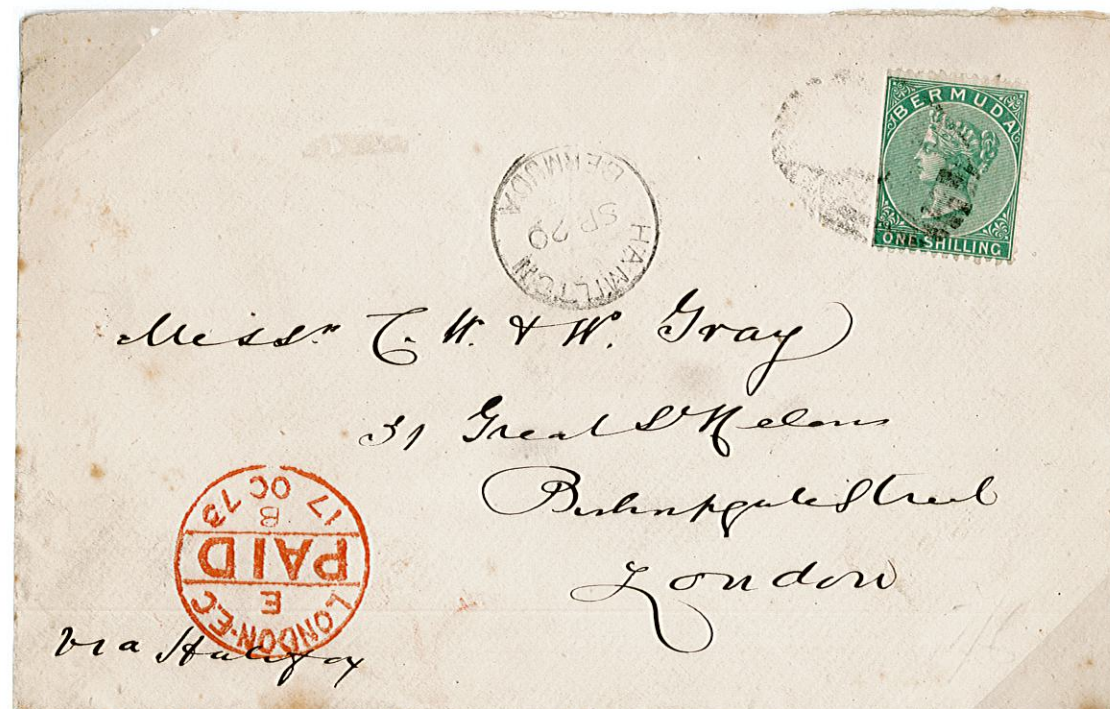 BERMUDA
ONE SHILLING
HAMILTON
SP 29
BERMUDA
Messrs C. W. & W. Gray
31 Great St Helens
Bishopsgate Street
London
LONDON-E.C
E
PAID
B
17 OC 73
via Halifax